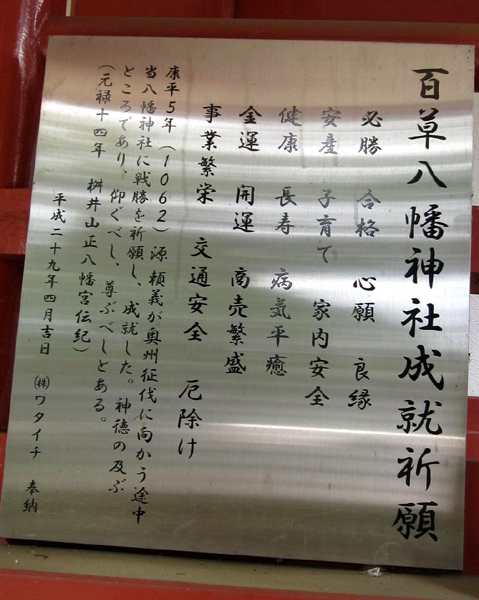 百草八幡神社成就祈願
必勝 合格 心願 良縁
安産 子育て 家内安全
健康 長寿 病気平癒
金運 開運 商売繁盛
事業繁栄 交通安全 厄除け
康平5年(1062)源頼義が奥州征伐に向かう途中
当八幡神社に戦勝を祈願し、成就した。神徳の及ぶ
ところであり、仰ぐべし、尊ぶべしとある。
(元禄十四年 桝井山正八幡宮伝紀)
平成二十九年四月吉日 ㈱ワタイチ 奉納